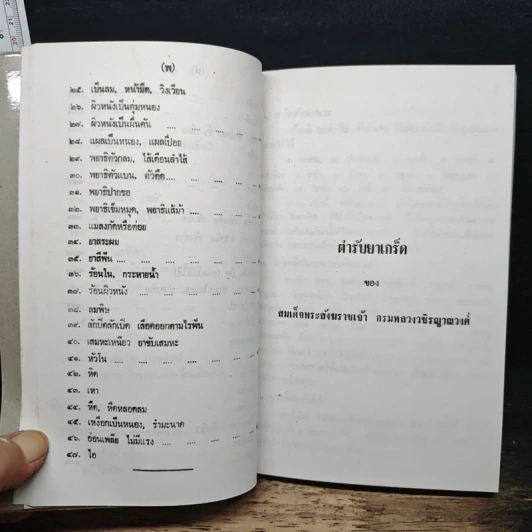 (พ)
๒๕. เป็นลม, หน้ามืด, วิงเวียน
๒๖. ผิวหนังเป็นตุ่มหนอง
๒๗. ผิวหนังเป็นผื่นคัน
๒๘. แผลเป็นหนอง, แผลเปื่อย
๒๙. พยาธิตัวกลม, ไส้เดือนลำไส้
๓๐. พยาธิตัวแบน, ตัวตืด
๓๑. พยาธิปากขอ
๓๒. พยาธิเข็มหมุด, พยาธิแส้ม้า
๓๓. แมลงกัดหรือต่อย
๓๔. ยาสระผม
๓๕. ยาสีฟัน
๓๖. ร้อนใน, กระหายน้ำ
๓๗. ร้อนผิวหนัง
๓๘. ลมพิษ
๓๙. ลักปิดลักเปิด เลือดออกตามไรฟัน
๔๐. เสมหะเหนียว ยาขับเสมหะ
๔๑. หัวโน
๔๒. หิด
๔๓. เหา
๔๔. หืด, หืดหลอดลม
๔๕. เหงือกเป็นหนอง, รำมะนาด
๔๖. อ่อนเพลีย ไม่มีแรง
๔๗. ไอ
ตำรับยาเกร็ด
ของ
สมเด็จพระสังฆราชเจ้า กรมหลวงวชิรญาณวงศ์